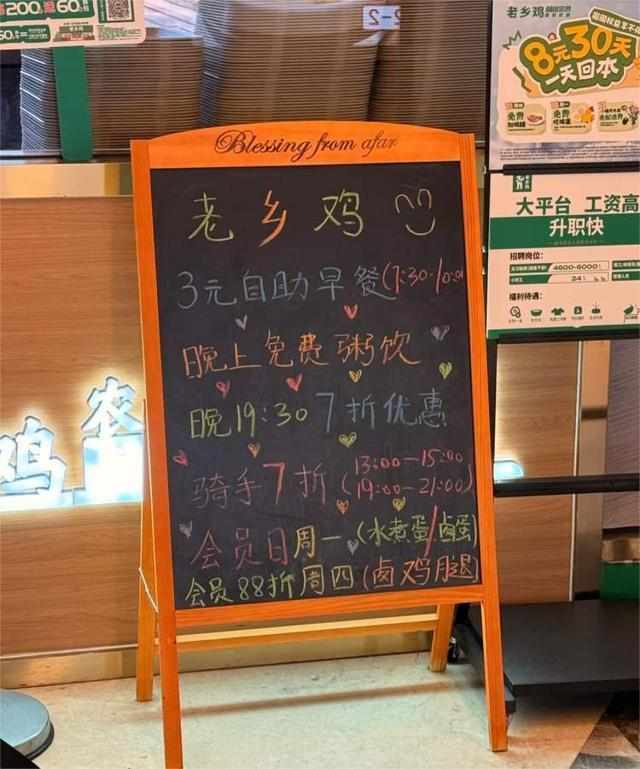 200
60
2-2
老乡鸡
8元30天
一天回本
免费
免费
Blessing from afar
老乡鸡
3元自助早餐(7:30-10:00)
晚上免费粥饮
晚19:30 7折优惠
骑手7折(13:00—15:00
19:00—21:00)
会员日周一(水煮蛋/卤蛋)
会员88折周四(卤鸡腿)
大平台 工资高
升职快
招聘岗位:
4600-6000
24
福利待遇:
鸡
农